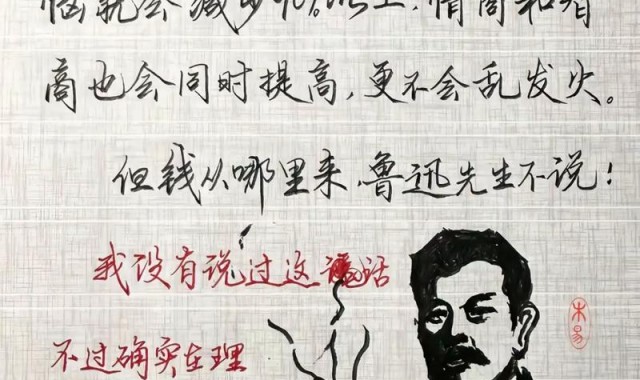 恼就会减少90%以上,情商和智
商也会同时提高,更不会乱发火。
但钱从哪里来,鲁迅先生不说!
我没有说过这话
不过确实在理
木易